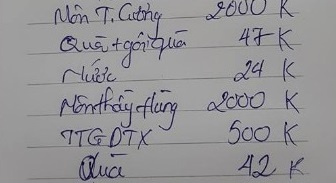 Môn T. Cường 2000 K
Quà + gói quà 47 K
Nước 24 K
Môn thầy Hùng 2000 K
TTGDTX 500 K
Quà 42 K